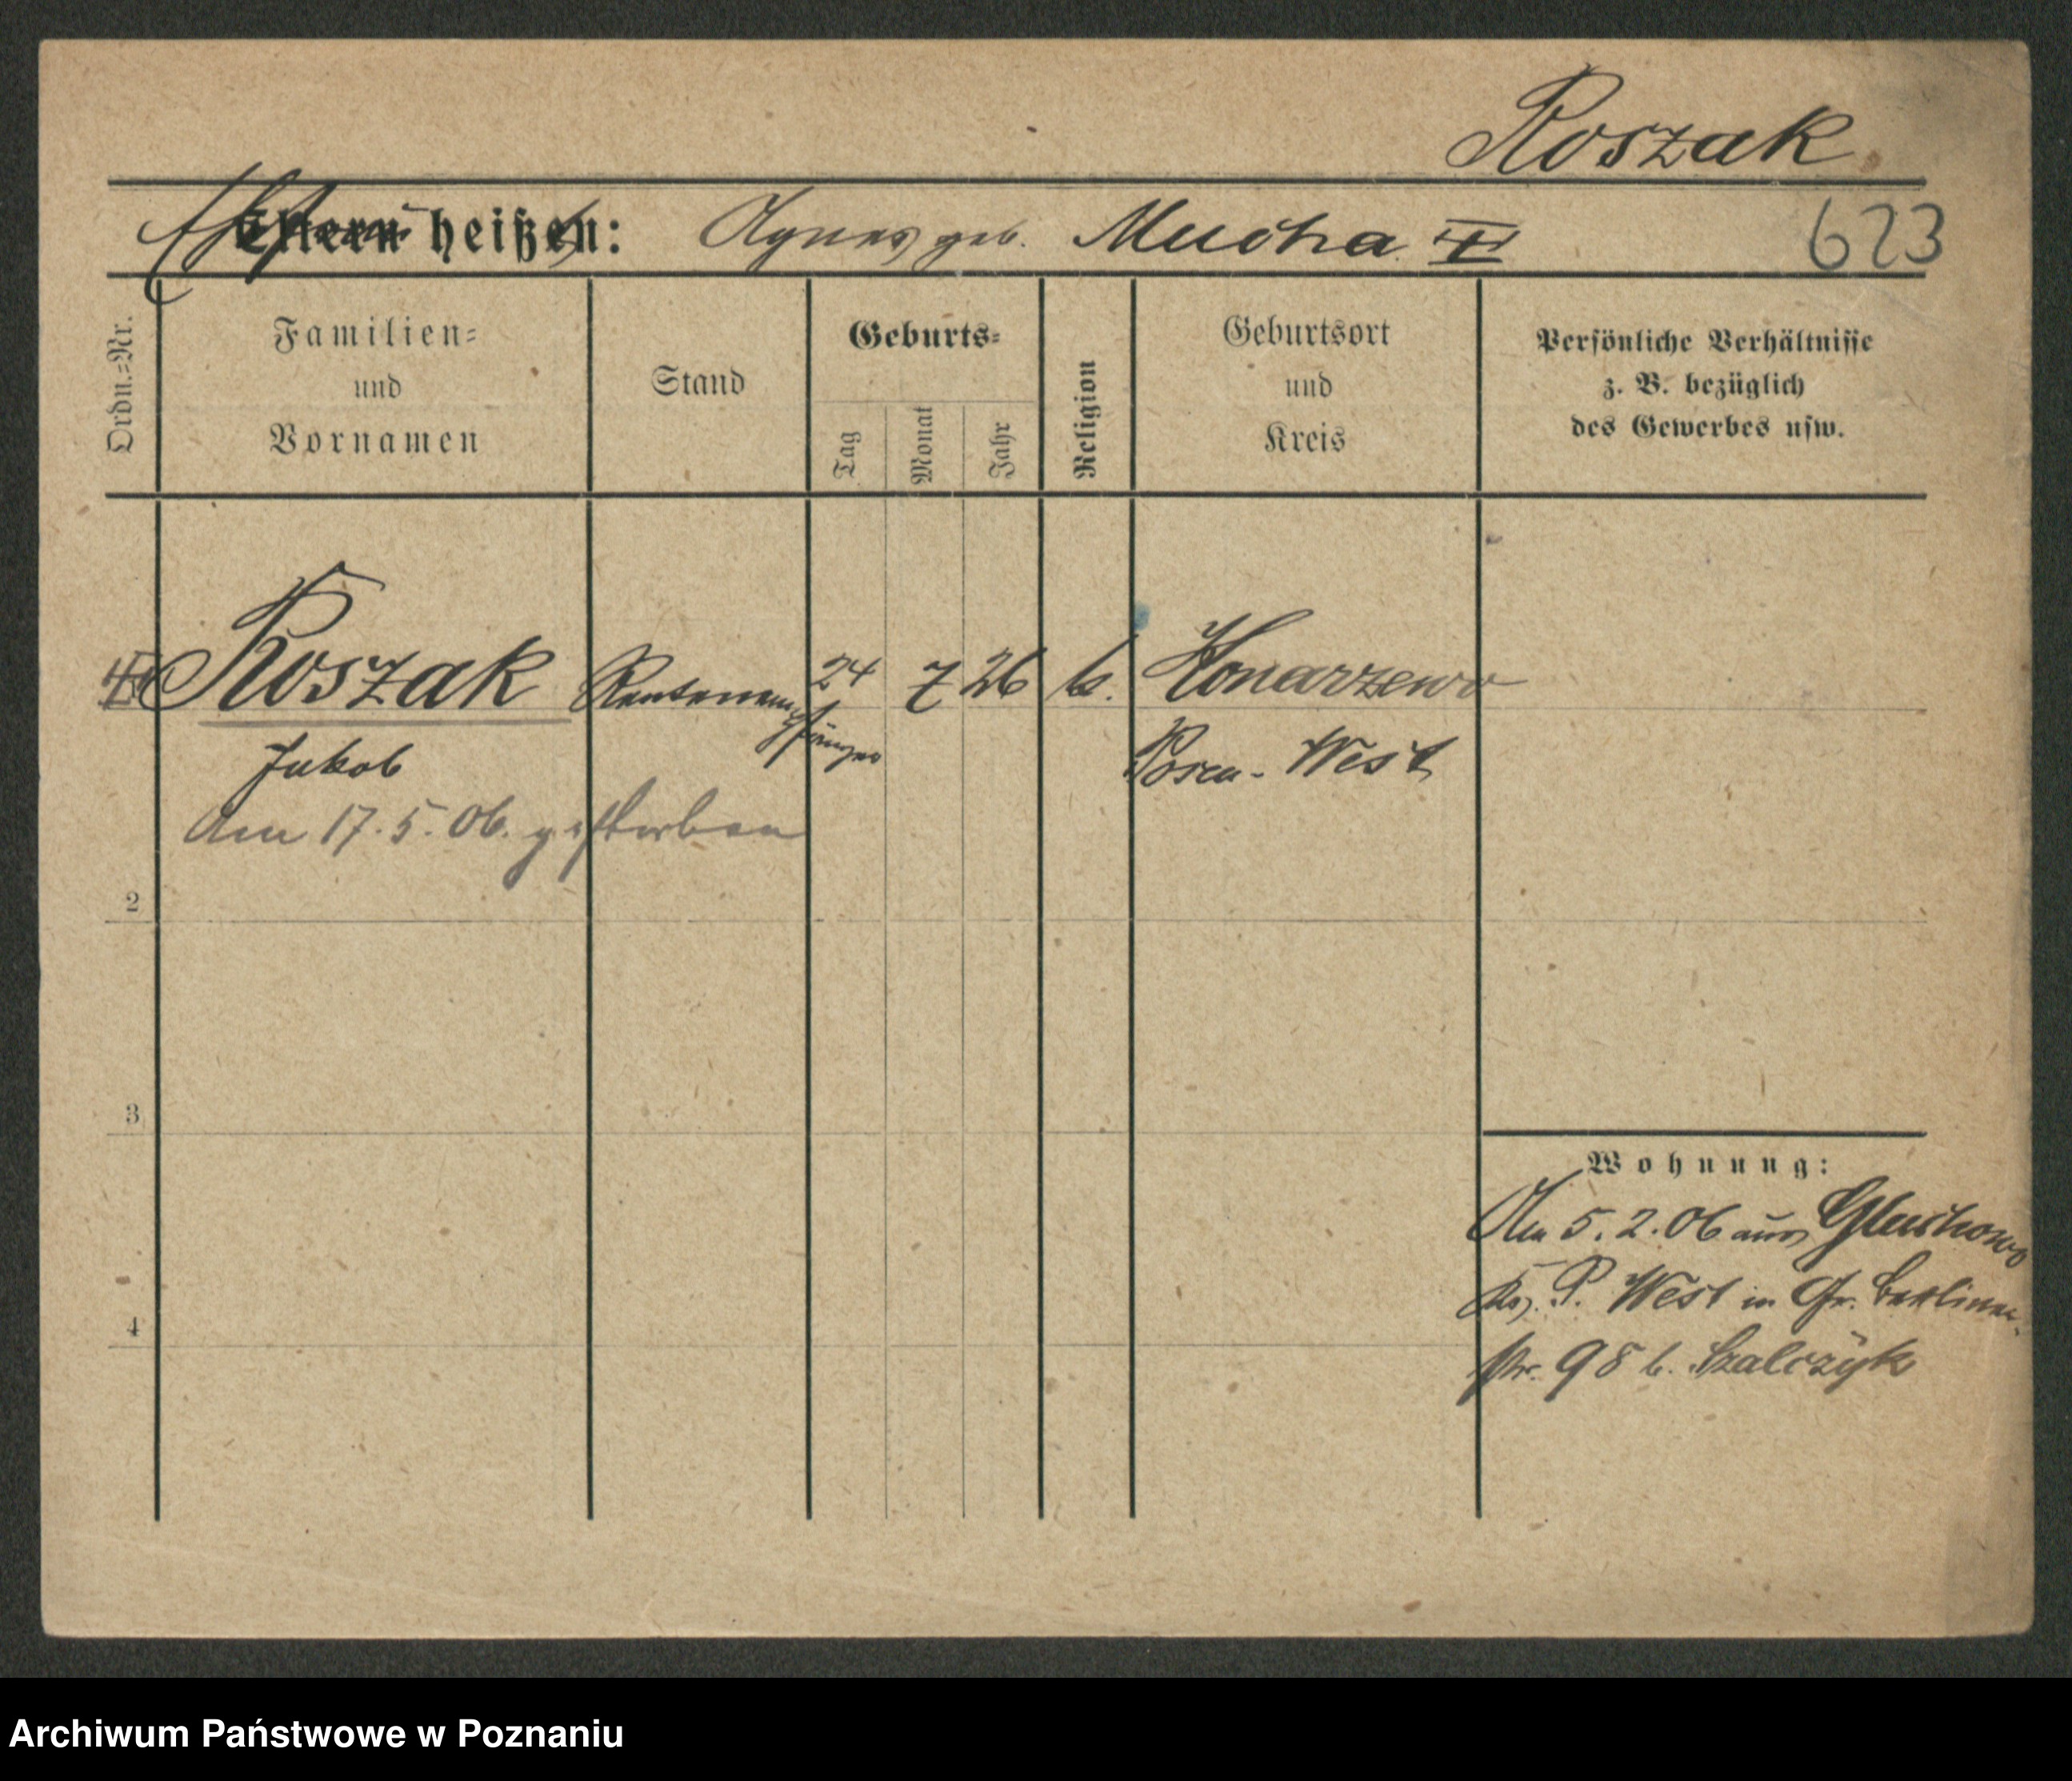 Roszak
Ehefrau heißt: Agnes geb. Mucha ✝
623
Ordn.-Nr.
Familien-
und
Vornamen
Stand
Geburts-
Tag
Monat
Jahr
Religion
Geburtsort
und
Kreis
Persönliche Verhältnisse
z. B. bezüglich
des Gewerbes usw.
Roszak Rentenempfänger 24 7 26 k. Konarzewo
Jakob Posen-West
Am 17.5.06. gestorben
2
3
4
Wohnung:
Am 5.2.06 aus Gluchowo
Krs. P. West in Gr. Berliner-
str. 98 b. Szalczyk
Archiwum Państwowe w Poznaniu